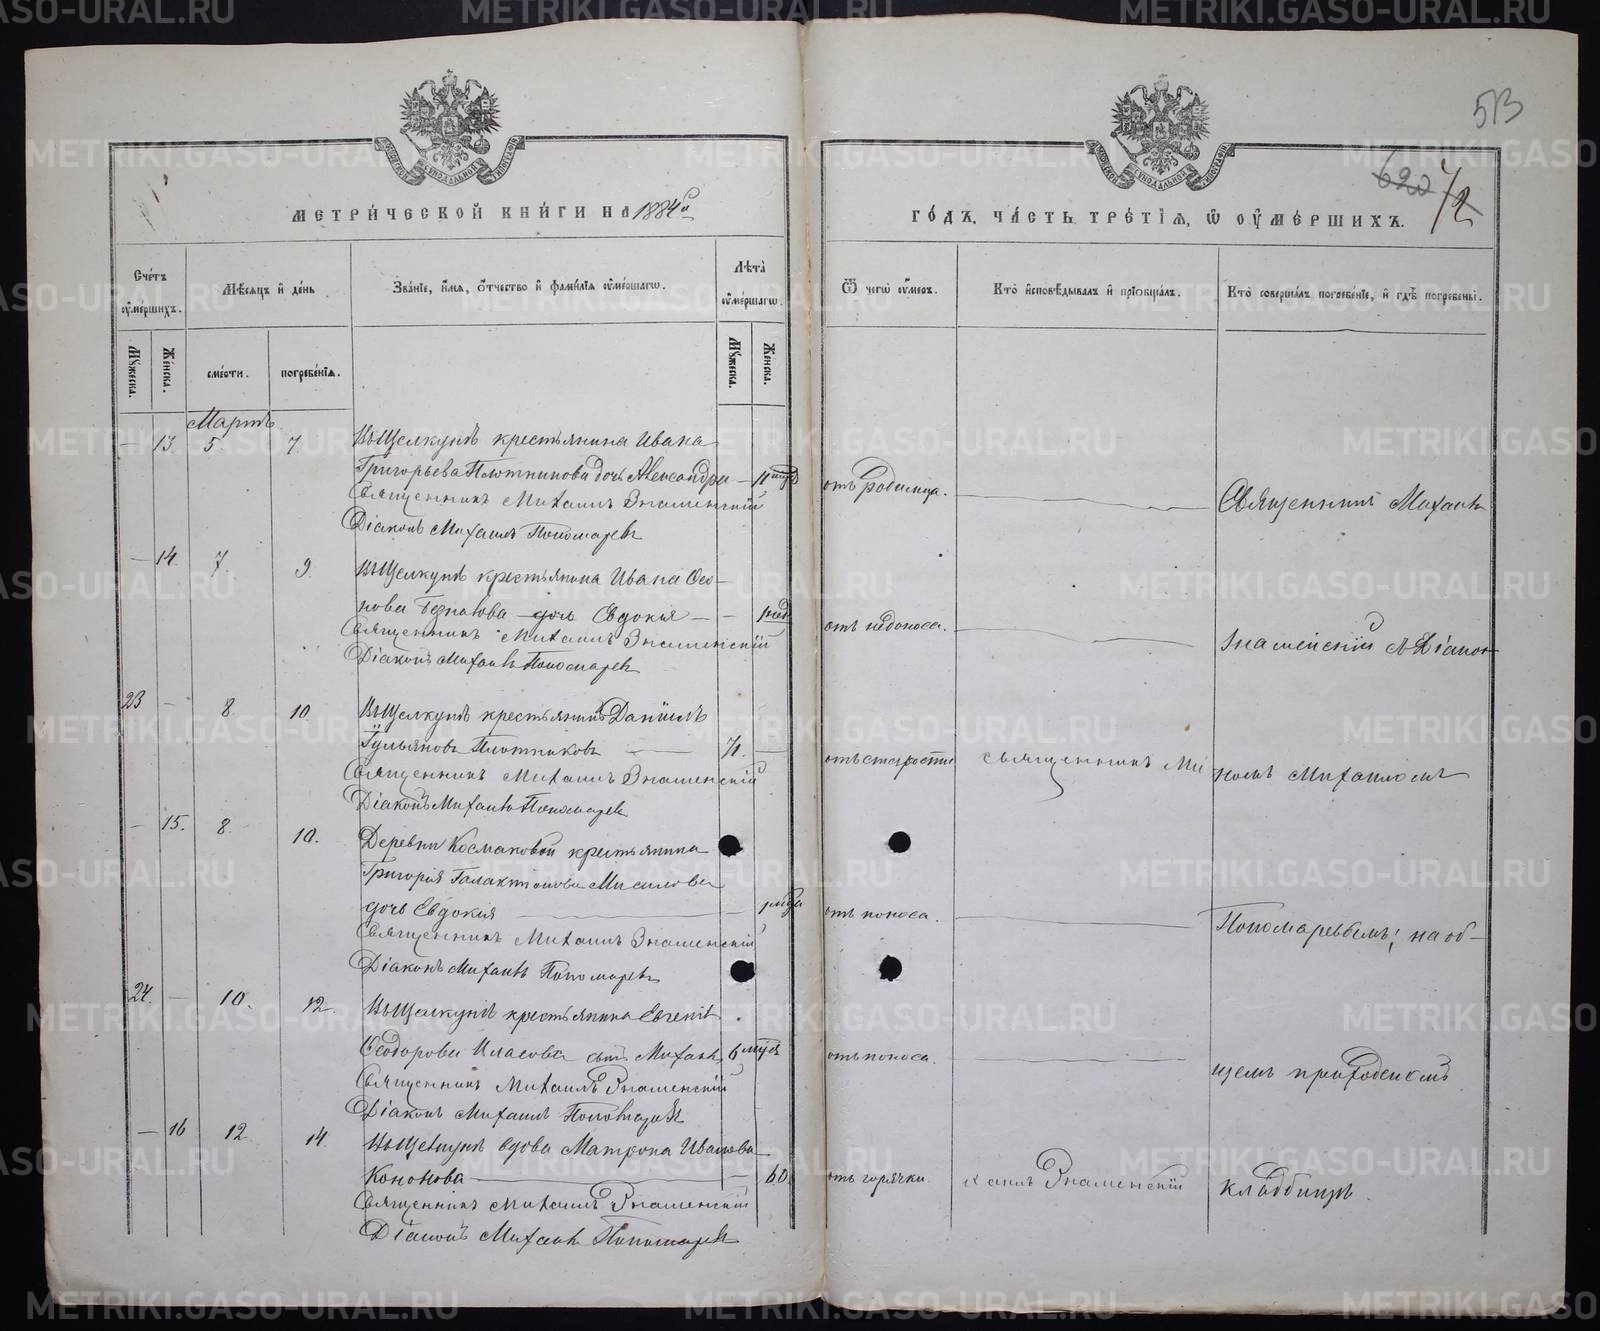 513
620
72
МЕТРИЧЕСКОЙ КНИГИ НА 1884й
ГОДЪ, ЧАСТЬ ТРЕТІЯ, Ѿ ОУМЕРШИХЪ.
Счетъ оумершихъ.
Мѣсяцъ и день
Званіе, имя, отчество и фамилія оумершагѡ.
Лѣта оумершагѡ.
Ѿ чегѡ оумеръ.
Кто исповѣдывалъ и пріобщалъ.
Кто совершалъ погребеніе, и гдѣ погребены.
Мужеска.
Женска.
смерти.
погребенія.
Мужеска.
Женска.
Мартъ
— 13 5 7
Въ Щелкунѣ крестьянина Ивана
Григорьева Плотникова дочь Александра — 11
отъ родимца.
Священникъ Михаилъ Знаменскій
Діаконъ Михаилъ Пономаревъ
Священникъ Михаилъ
— 14. 7. 9.
Въ Щелкунѣ крестьянина Ивана Осо-
нова дочь Евдокія — —
отъ недоноса.
Священникъ Михаилъ Знаменскій
Діаконъ Михаилъ Пономаревъ
Знаменскій съ Діако-
23 — 8. 10.
Въ Щелкунѣ крестьянинъ Даніилъ
Іульяновъ Плотниковъ — 71. —
отъ старости
священникъ Ми
Священникъ Михаилъ Знаменскій
Діаконъ Михаилъ Пономаревъ
номъ Михаиломъ
— 15. 8. 10.
Деревни Космаковой крестьянина
Григорія Галактіонова
дочь Евдокія —
отъ поноса.
Священникъ Михаилъ Знаменскій
Діаконъ Михаилъ Пономаревъ
Пономаревымъ; на об-
24. — 10. 12.
Въ Щелкунѣ крестьянина Евгенія
Ѳеодорова Власова сынъ Михаилъ 6
отъ поноса.
Священникъ Михаилъ Знаменскій
Діаконъ Михаилъ Пономаревъ
щемъ приходскомъ
— 16 12 14
Въ Щелкунѣ вдова Матрона Иванова
Кононова — — 60.
отъ горячки
хаилъ Знаменскій
кладбищѣ.
Священникъ Михаилъ Знаменскій
Діаконъ Михаилъ Пономаревъ
METRIKI.GASO-URAL.RU